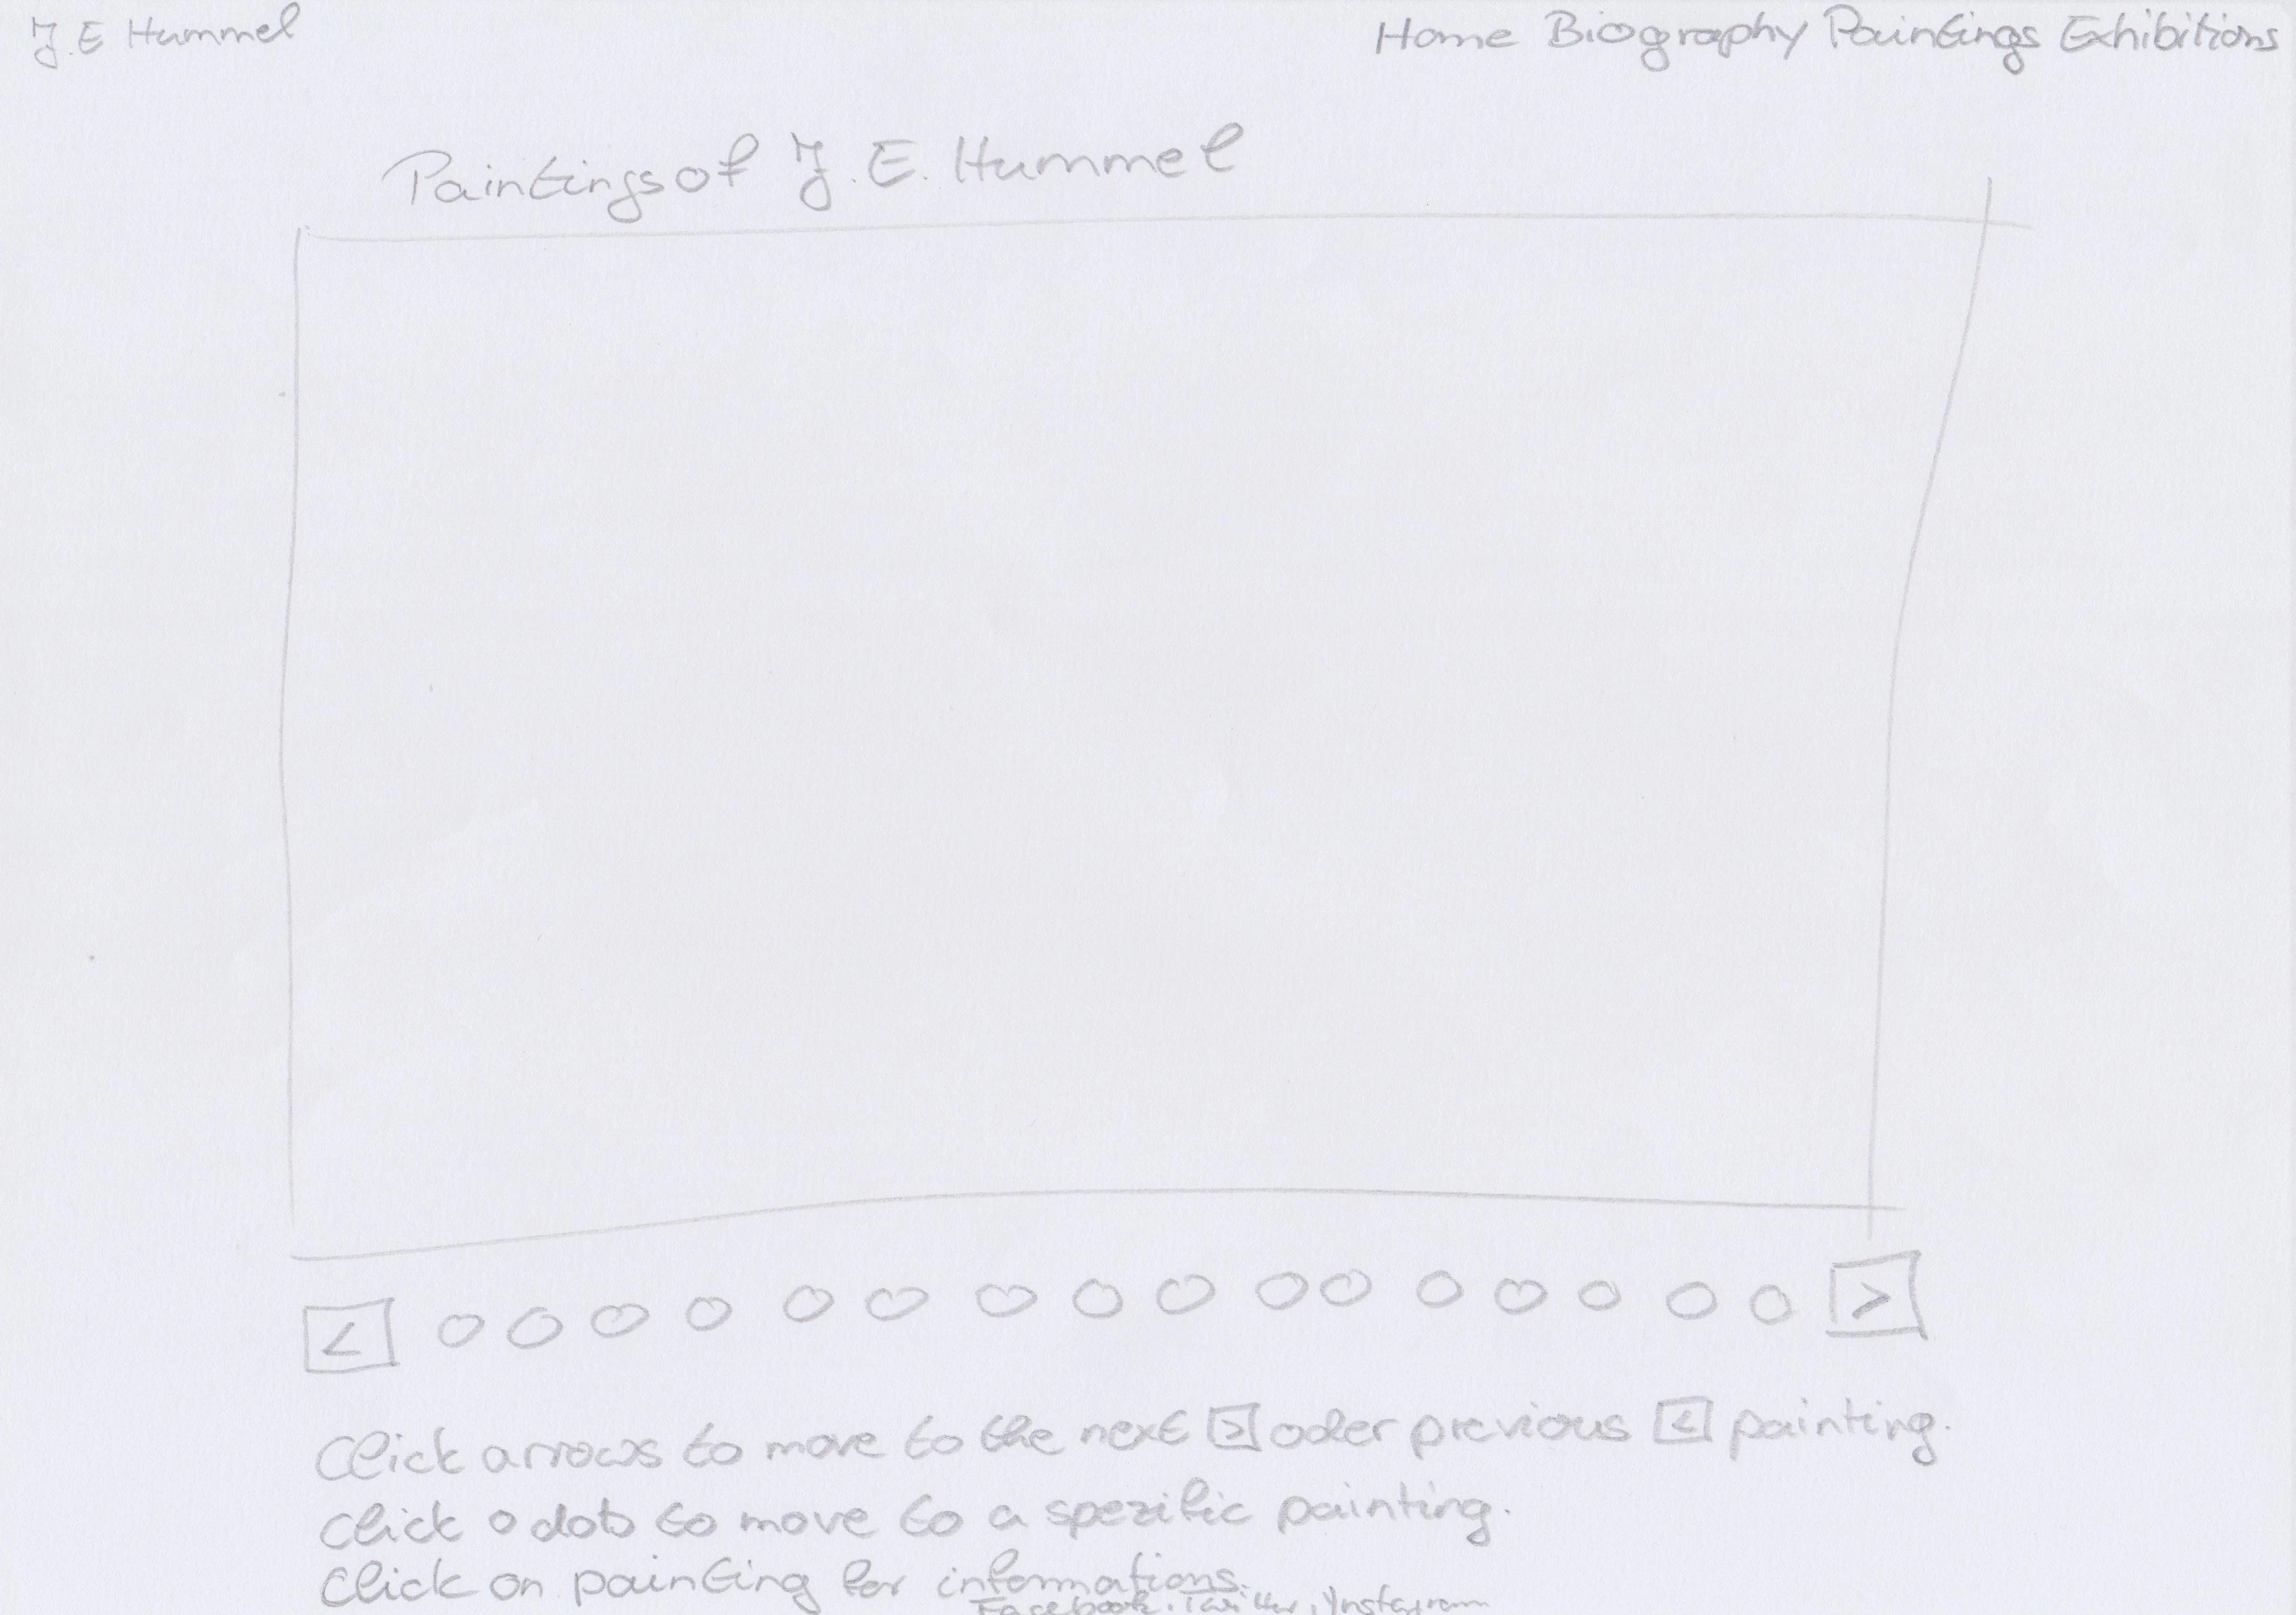 J.E Hummel
Home Biography Paintings Exhibitions
Paintings of J.E. Hummel
< >
Click arrows to move to the next > oder previous < painting.
Click o dots to move to a spezific painting.
Click on painting for informations.
Facebook, Twitter, Instagram